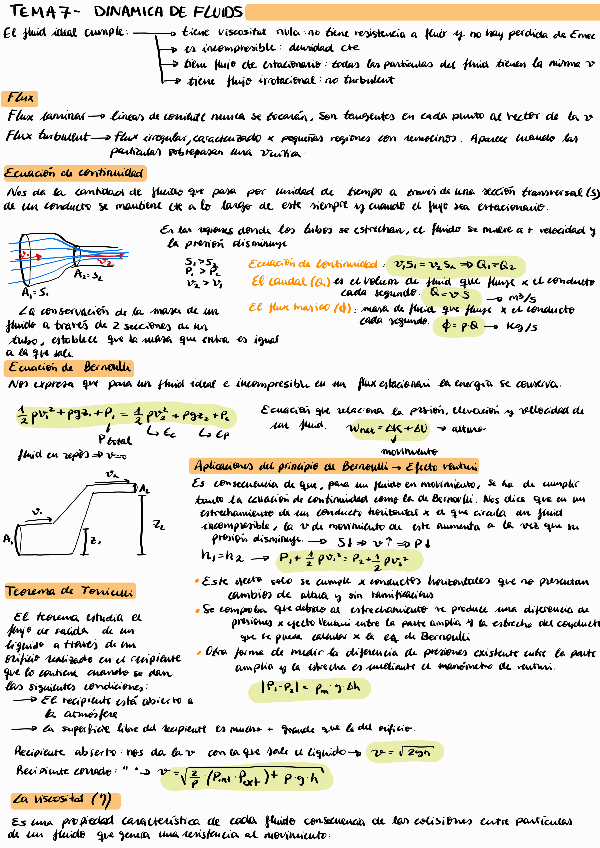 TEMA 7- DINAMICA DE FLUIDS
El fluid ideal cumple: → tiene viscositat nula: no tiene resistencia a fluir y no hay perdida de Emec
→ es incompresible: densidad cte
→ tiene flujo cte estacionario: todas las partículas del fluid tienen la misma v
→ tiene flujo irrotacional: no turbulent
Flux
Flux laminar → líneas de corriente nunca se tocarán, son tangentes en cada punto al vector de la v
Flux turbulent → flux irregular, caracterizado x pequeñas regiones con remolinos. Aparece cuando las
partículas sobrepasan una v crítica
Ecuación de continuidad
Nos da la cantidad de fluido que pasa por unidad de tiempo a través de una sección transversal (S)
de un conducto se mantiene cte a lo largo de este siempre y cuando el flujo sea estacionario.
En las regiones donde los tubos se estrechan, el fluido se mueve a + velocidad y
la presión disminuye
v₁ v₂
A₂=S₂
A₁=S₁
S₁>S₂
P₁>P₂
v₂>v₁
Ecuación de continuidad: v₁S₁ = v₂S₂ ⇒ Q₁=Q₂
El caudal (Q) es el volum de fluid que fluye x el conducto
cada segundo. Q = v·S → m³/s
El flux màssic (ϕ): masa de fluid que fluye x el conducto
cada segundo. ϕ = ρ·Q → Kg/s
La conservación de la masa de un
fluido a través de 2 secciones de un
tubo, establece que la masa que entra es igual
a la que sale
Ecuación de Bernoulli
Nos expresa que para un fluid ideal e incompresible en un flux estacionari la energía se conserva.
½ρv₁²+ρgz₁+P₁ = ½ρv₂²+ρgz₂+P₂
P total
Ec Ep
fluid en repòs ⇒ v=0
Ecuación que relaciona la presión, elevación y velocidad de
un fluid. Wnet = ΔK+ΔU → altura
movimiento
v₁ v₂ A₁ A₂ z₁ z₂
Aplicaciones del principio de Bernoulli → Efecto venturi
Es consecuencia de que, para un fluido en movimiento, se ha de cumplir
tanto la ecuación de continuidad como la de Bernoulli. Nos dice que en un
estrechamiento de un conducto horizontal x el que circula un fluid
incompresible, la v de movimiento de este aumenta a la vez que su
presión disminuye. → S↓ → v↑ → P↓
h₁=h₂ → P₁+½ρv₁²=P₂+½ρv₂²
• Este efecto solo se cumple x conductos horizontales que no presentan
cambios de altura y sin ramificacions
• Se comprueba que debido al estrechamiento se produce una diferencia de
presiones x efecto Venturi entre la parte amplia y la estrecha del conducto
que se puede calcular x la eq de Bernoulli
• Otra forma de medir la diferencia de presiones existente entre la parte
amplia y la estrecha es mediante el manómetro de venturi.
|P₁-P₂| = ρm·g·Δh
Teorema de Torricelli
El teorema estudia el
flujo de salida de un
líquido a través de un
orificio realizado en el recipiente
que lo contiene cuando se dan
las siguientes condiciones:
→ El recipiente está abierto a
la atmósfera
→ La superficie libre del recipiente es mucho + grande que la del orificio.
Recipiente abierto: nos da la v con la que sale el líquido → v = √2gh
Recipiente cerrado: " " → v = √(2/ρ · (Pint · Pext) + ρ·g·h)
La viscositat (η)
Es una propiedad característica de cada fluido consecuencia de las colisiones entre partículas
de un fluido que genera una resistencia al movimiento: